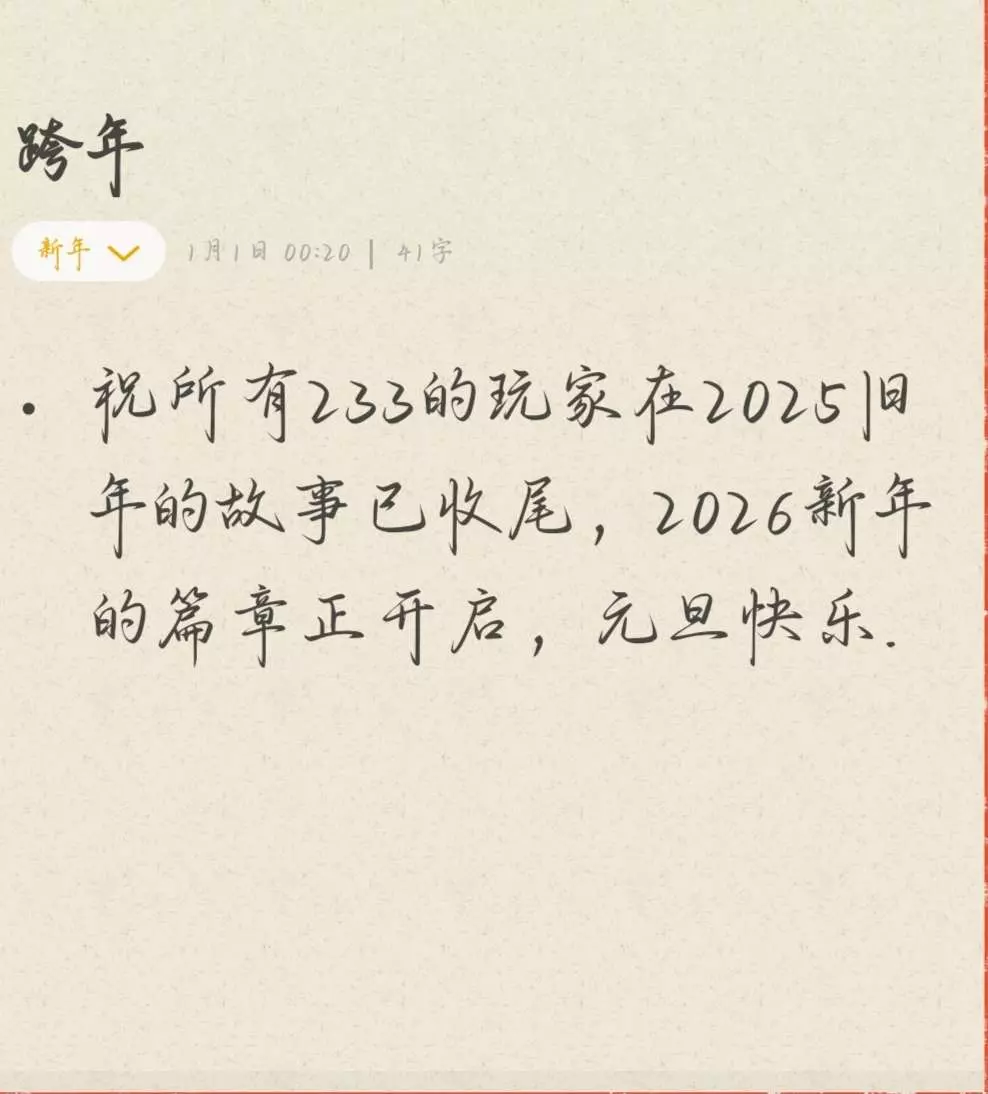 跨年
新年 1月1日 00:20 | 41字
• 祝所有233的玩家在2025旧
年的故事已收尾，2026新年
的篇章正开启，元旦快乐.